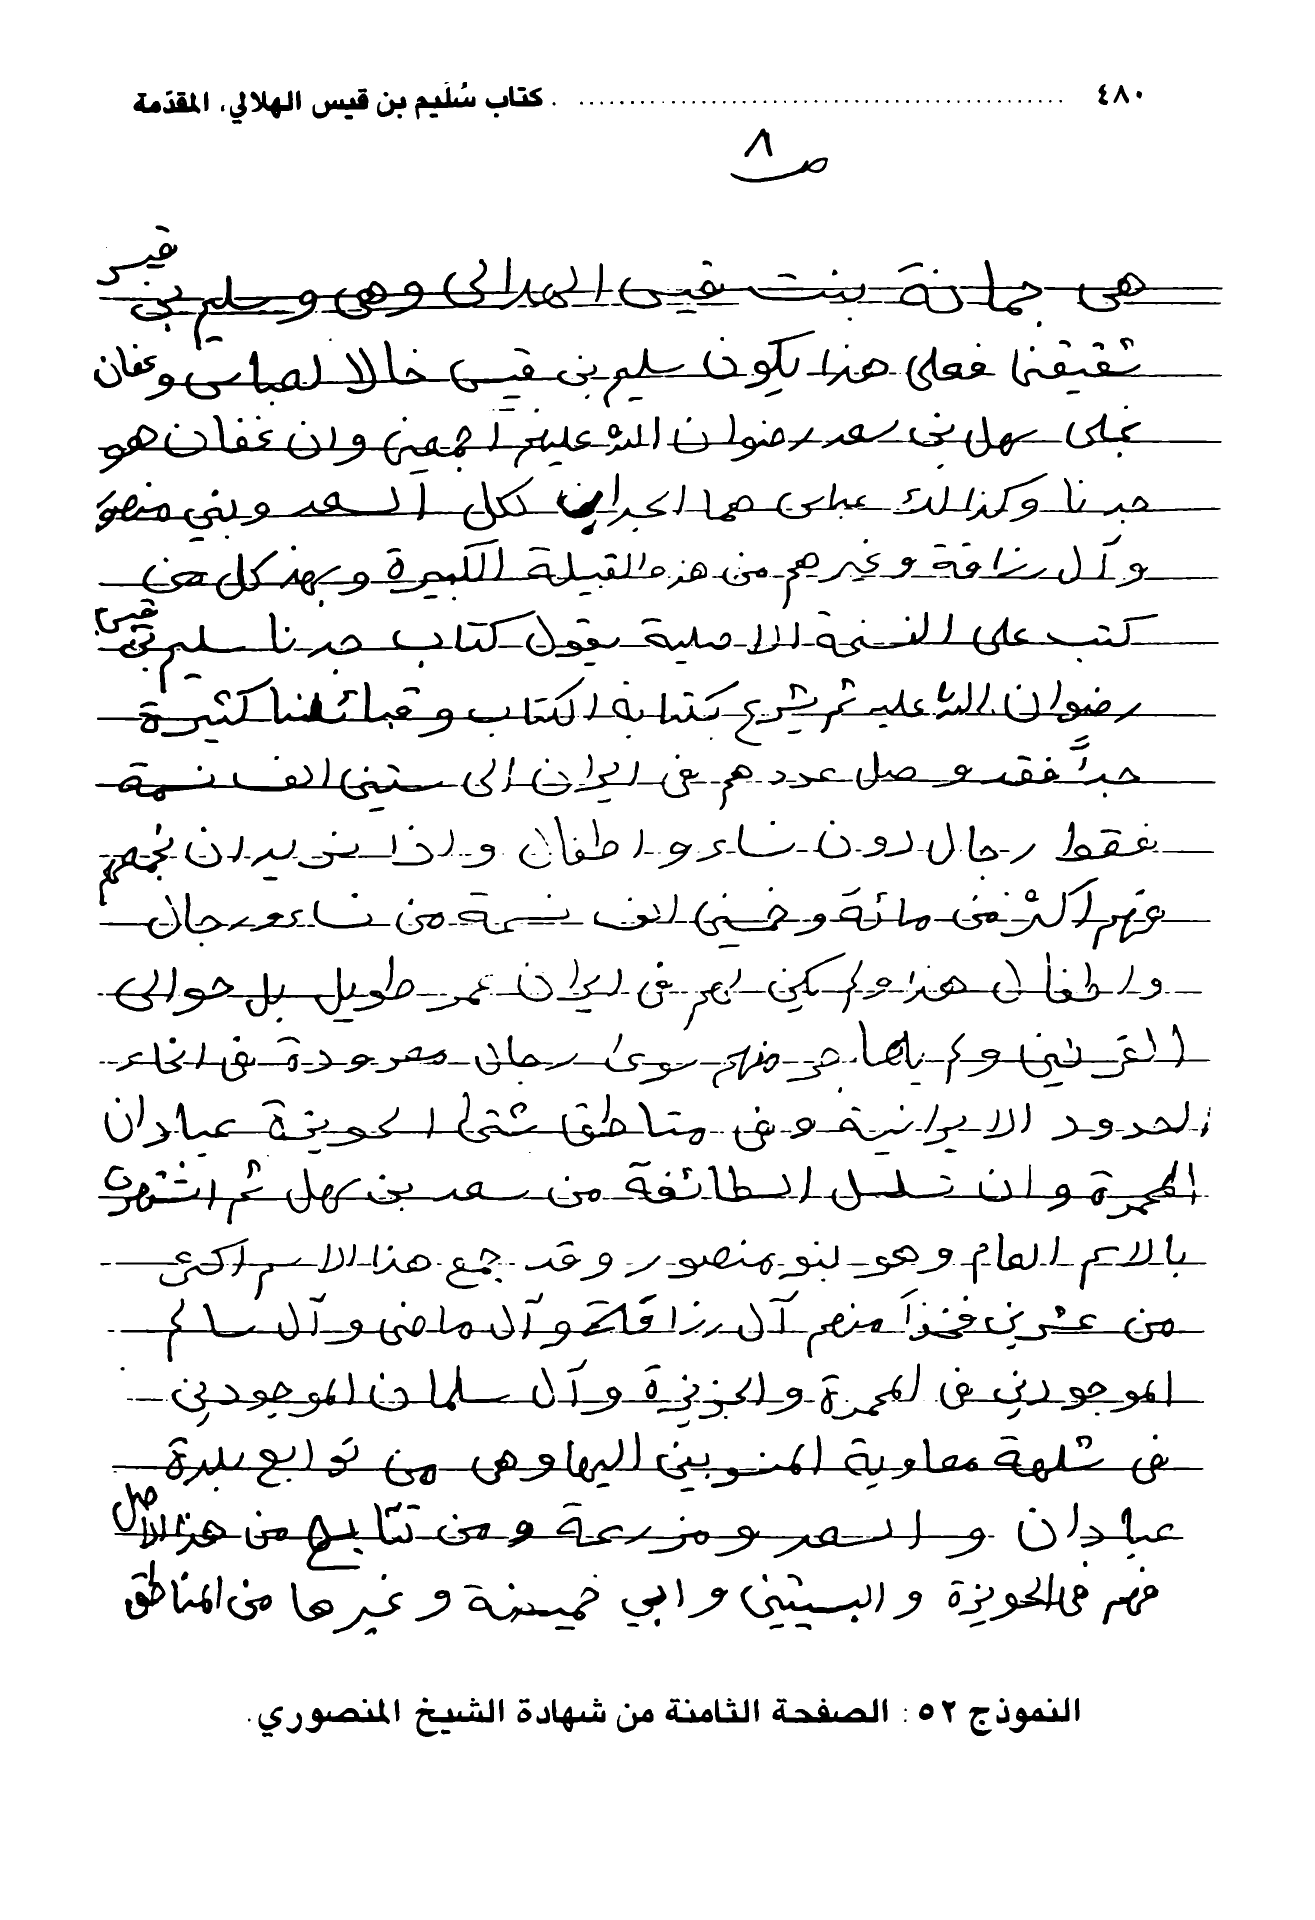 ٤٨٠ ........ كتاب سُلَيم بن قيس الهلالي، المقدّمة
ص ٨
هي جمانة بنت قيس الهلالي وهي وسليم بن قيس
شقيقنا فعلى هذا يكون سليم بن قيس خالا لعباس وعفان
نجلى سهل بن سعد رضوان الله عليهم أجمعين وان عفان هو
جدنا وكذالك عباس هما الجدان لكل آلسعد وبني منصور
وآل رزاقة وغيرهم من هذه القبيلة الكبيرة وبهذ كل من
كتب على النسخة الاصلية يقول كتاب جدنا سليم بن قيس
رضوان الله عليه ثم يشرع بكتابة الكتاب وقبائلنا كثيرة
جداً فقد وصل عددهم في ايران الى ستين الف نسمة
فقط رجال دون نساء واطفال واذا نريد ان نجمعهم
فهم اكثر من مائة وخمسين الف نسمة من نساء ورجال
واطفال هذا ولم يكن لهم في ايران عمر طويل بل حوالى
القرنين ولم يهاجر منهم سوى رجال معدودة في انحاء
الحدود الايرانية وفي مناطق شتى الحويزة عبادان
المحمرة وان تسلسل الطائفة من سعد بن سهل ثم اشتهرت
بالاسم العام وهو لبنو منصور وقد جمع هذا الاسم اكثر
من عشرين فخذاً منهم آل رزاقة وآل ماضي وآل سالم
الموجودين في المحمرة والجزيرة وآل سلمان الموجودين
في شلهة معاوية المنسوبين اليها وهي من توابع بلدة
عبادان والسعد ومزرعة ومن تتابع من هذا الاصل
فهم في الحويزة والبسيتين وابي خميسة وغيرها من المناطق
النموذج ٥٢ : الصفحة الثامنة من شهادة الشيخ المنصوري.